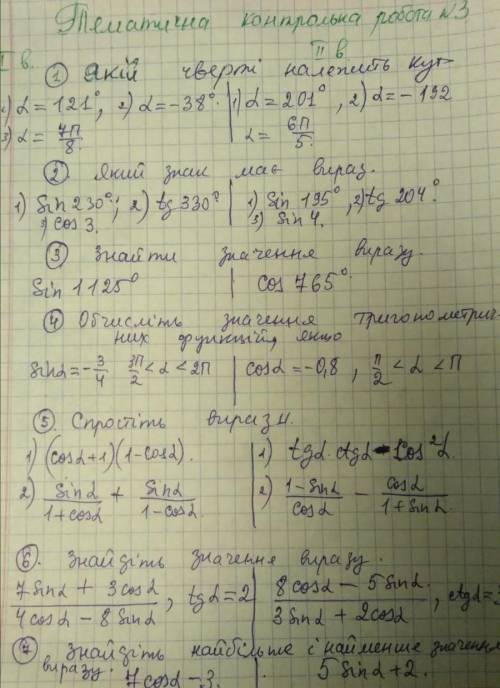 Тематична контрольна робота №3
I в. II в
① Якій чверті належить кут
1) α = 121°, 2) α = -38° | 1) α = 201°, 2) α = -192
3) α = 7π/8. | α = 6π/5.
② Який знак має вираз.
1) Sin 230°; 2) tg 330° | 1) Sin 195°, 2) tg 204°.
3) cos 3. | 3) Sin 4.
③ Знайти значення виразу.
Sin 1125° | cos 765°
④ Обчисліть значення тригонометрич-
них функцій, якщо
sinα = -3/4 3π/2 < α < 2π | cosα = -0,8, π/2 < α < π
⑤. Спростіть вирази.
1) (cosα+1)(1-cosα). | 1) tgα·ctgα - cos²α.
2) Sinα/(1+cosα) + Sinα/(1-cosα) | 2) (1-Sinα)/cosα - cosα/(1+Sinα)
⑥. Знайдіть значення виразу.
(7Sinα + 3cosα)/(4cosα - 8Sinα), tgα = 2 | (8cosα - 5Sinα)/(3Sinα + 2cosα), ctgα =
⑦ Знайдіть найбільше і найменше значення
виразу. 7cosα - 3. | 5Sinα + 2.